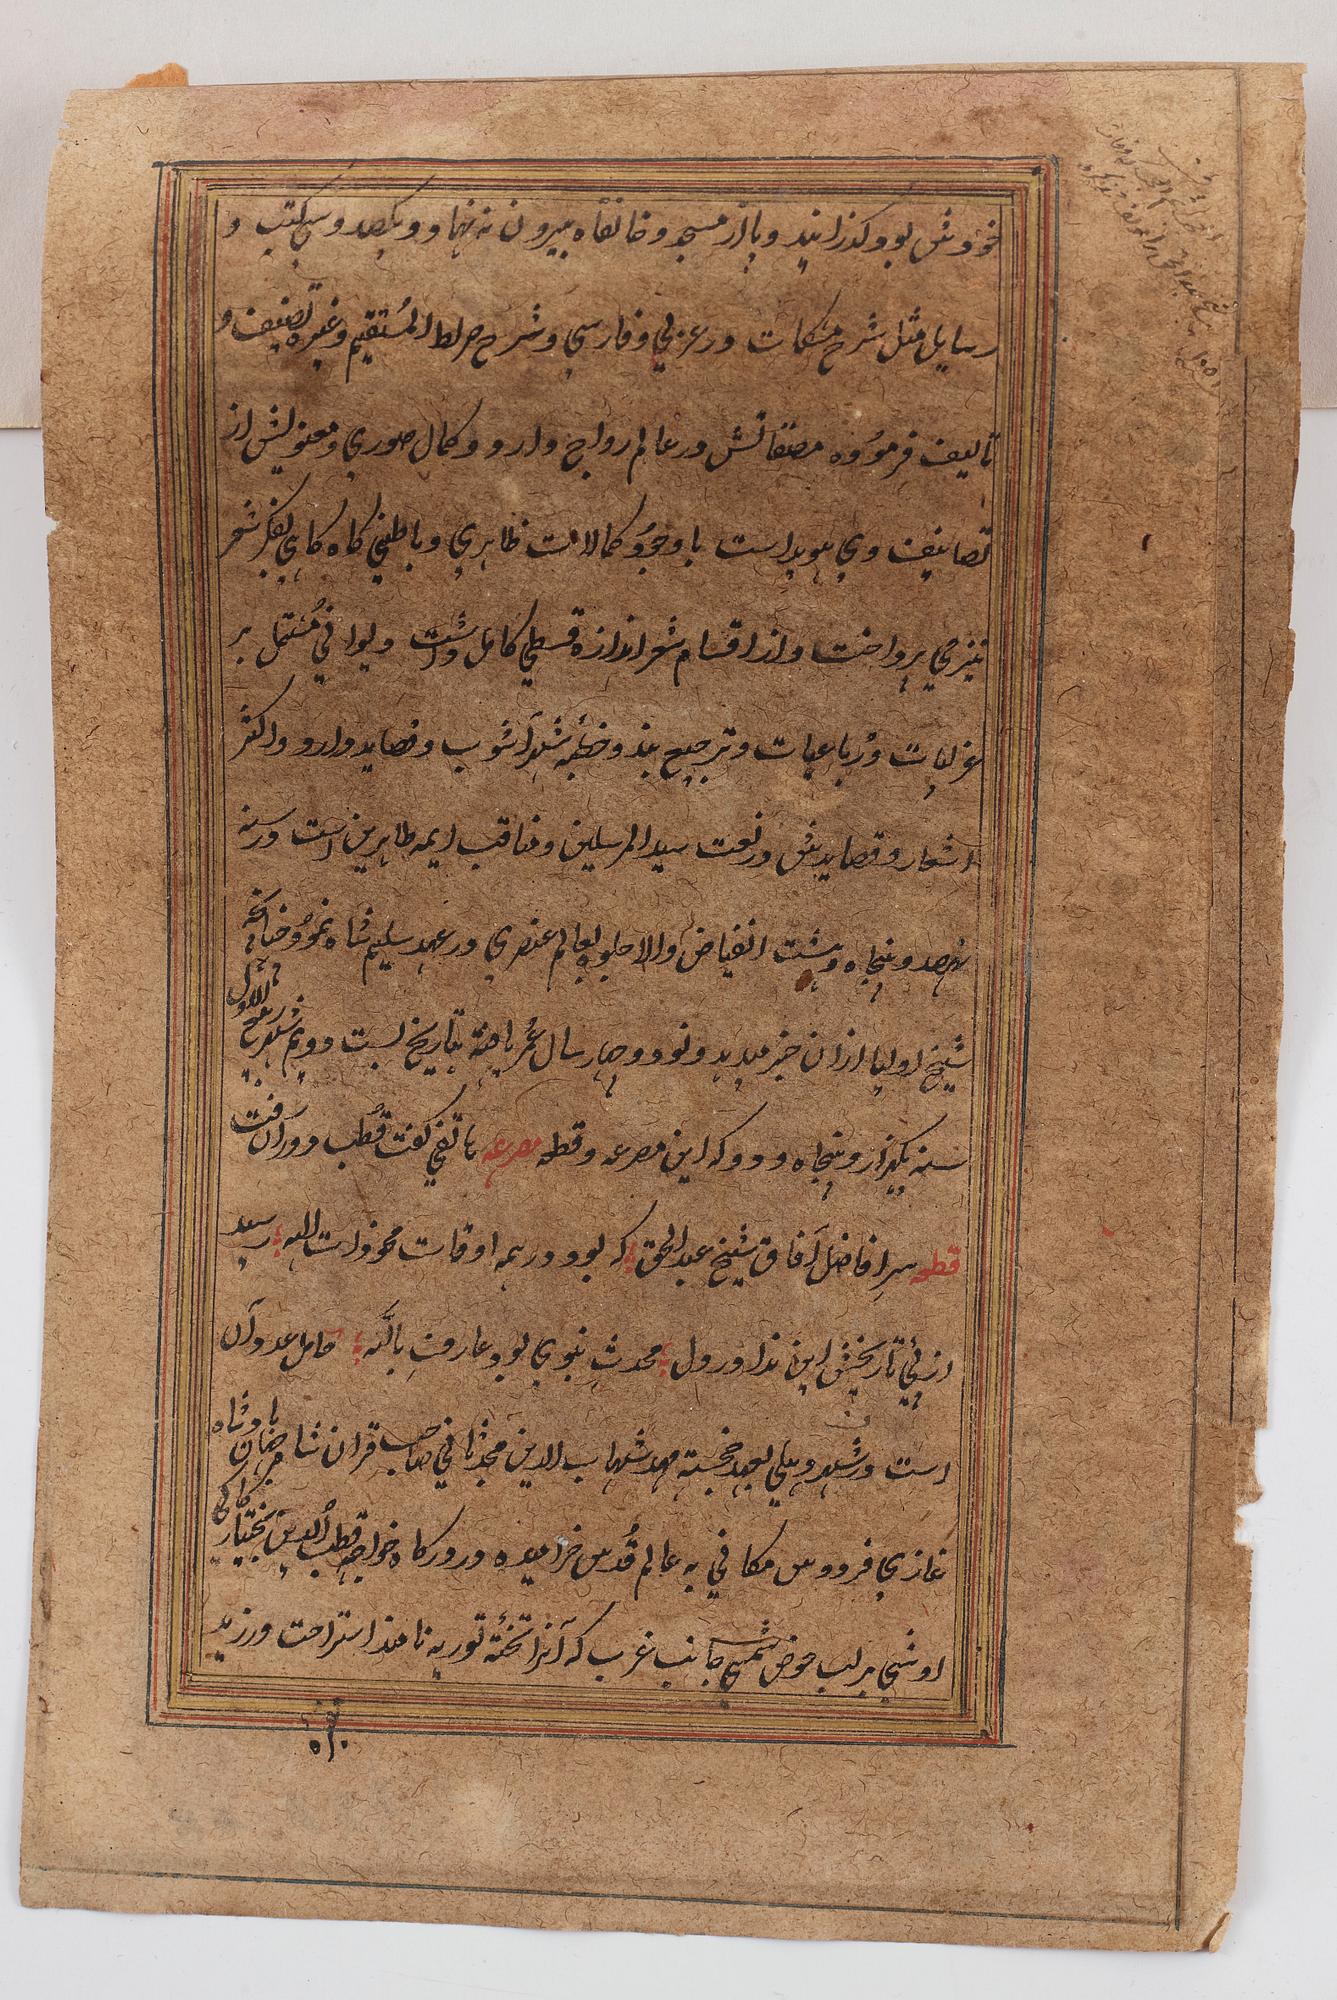 خودش بود گذرانید و پا از مسجد و خانقاه بیرون نه نهاد و یکصد و سی کتب و
رسایل مثل شرح مشکات در عربی و فارسی و شرح صراط المستقیم و غیره تصنیف و
تالیف فرموده مصنفاتش در عالم رواج دارد و کمال صوری و معنویش از
تصانیف وی هویداست با وجود کمالات ظاهری و باطنی کاه کاهی بفکر شعر
نیز می پرداخت و از اقسام شعر اندازه قسطی کامل داشت دیوانی مشتمل بر
غزلیات و رباعیات و ترجیع بند و خطبه شهرآشوب و قصاید دارد و اکثر
اشعار و قصایدش در نعت سید المرسلین و مناقب ایمه طاهرین است در سنه
نهصد و پنجاه و هشت انفیاض والا جلوه بعالم عنصری در عهد سلیم شاه نموده چنانچه
شیخ اولیا از ان خبر میدهد و نود و چهار سال عمر یافته بتاریخ بست دویم شهر ربیع الاول
سنه یکهزار و پنجاه و دو که این مصرعه و قطه مصرعه هاتفی گفت قطب دوران رفت
قطعه سر افاضل آفاق شیخ عبد الحق که بود در همه اوقات محو ذات الله رسید
از پی تاریخش این ندا در دل محدث نبوی بود عارف بالله حامل عدد آن
است در شهر دهلی بعهد خجسته مهد شهاب الدین محمد ثانی صاحب قران شاه جهان بادشاه
غازی فردوس مکانی به عالم قدس خرامیده در درکاه خواجه قطب الدین بختیار کاکی
اوشی بر لب حوض شمسی جانب غرب که آنرا تخته نوریه نامند استراحت ورزید